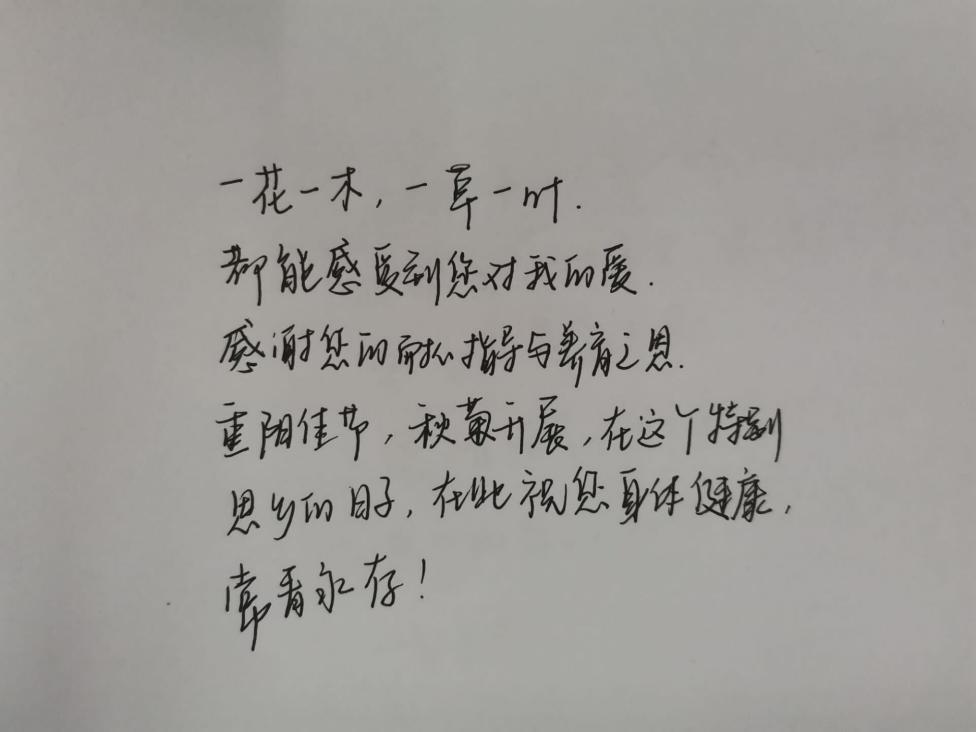 一花一木，一草一叶.
都能感受到您对我的爱.
感谢您的耐心指导与养育之恩.
重阳佳节，秋菊开展，在这个特别
思乡的日子，在此祝您身体健康，
常青永存！